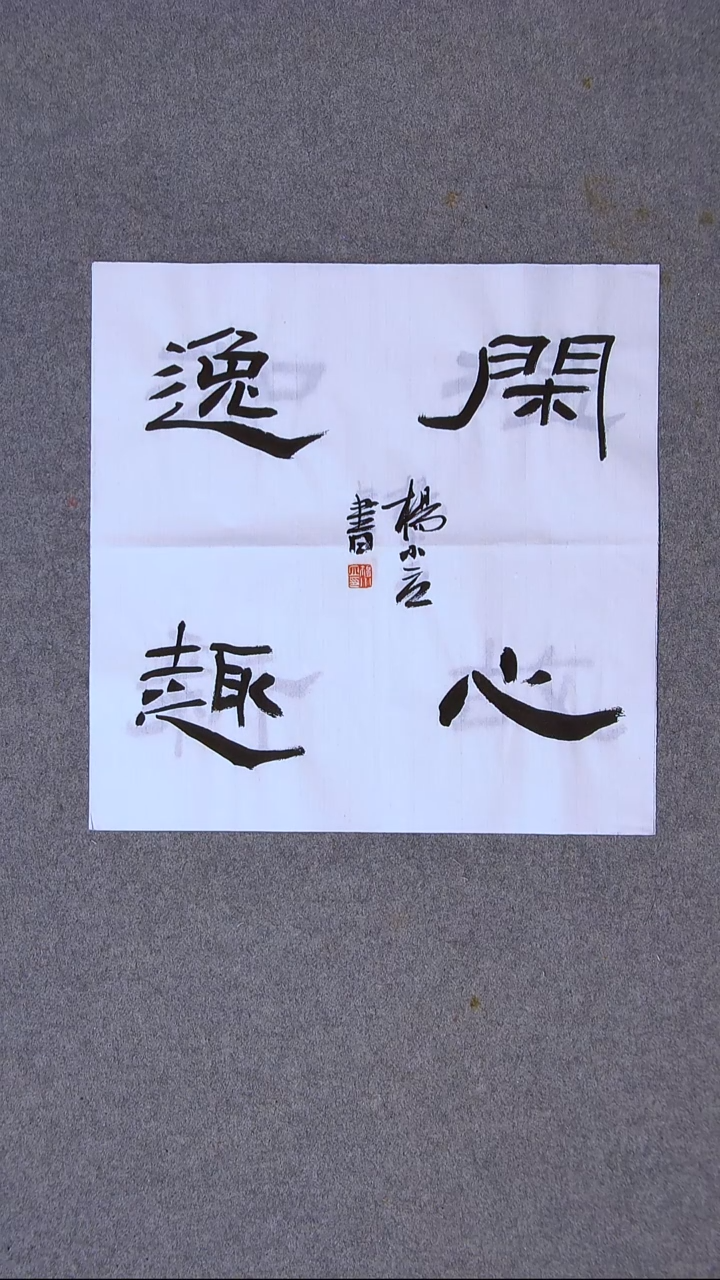 閑心
逸趣
楊小立
書